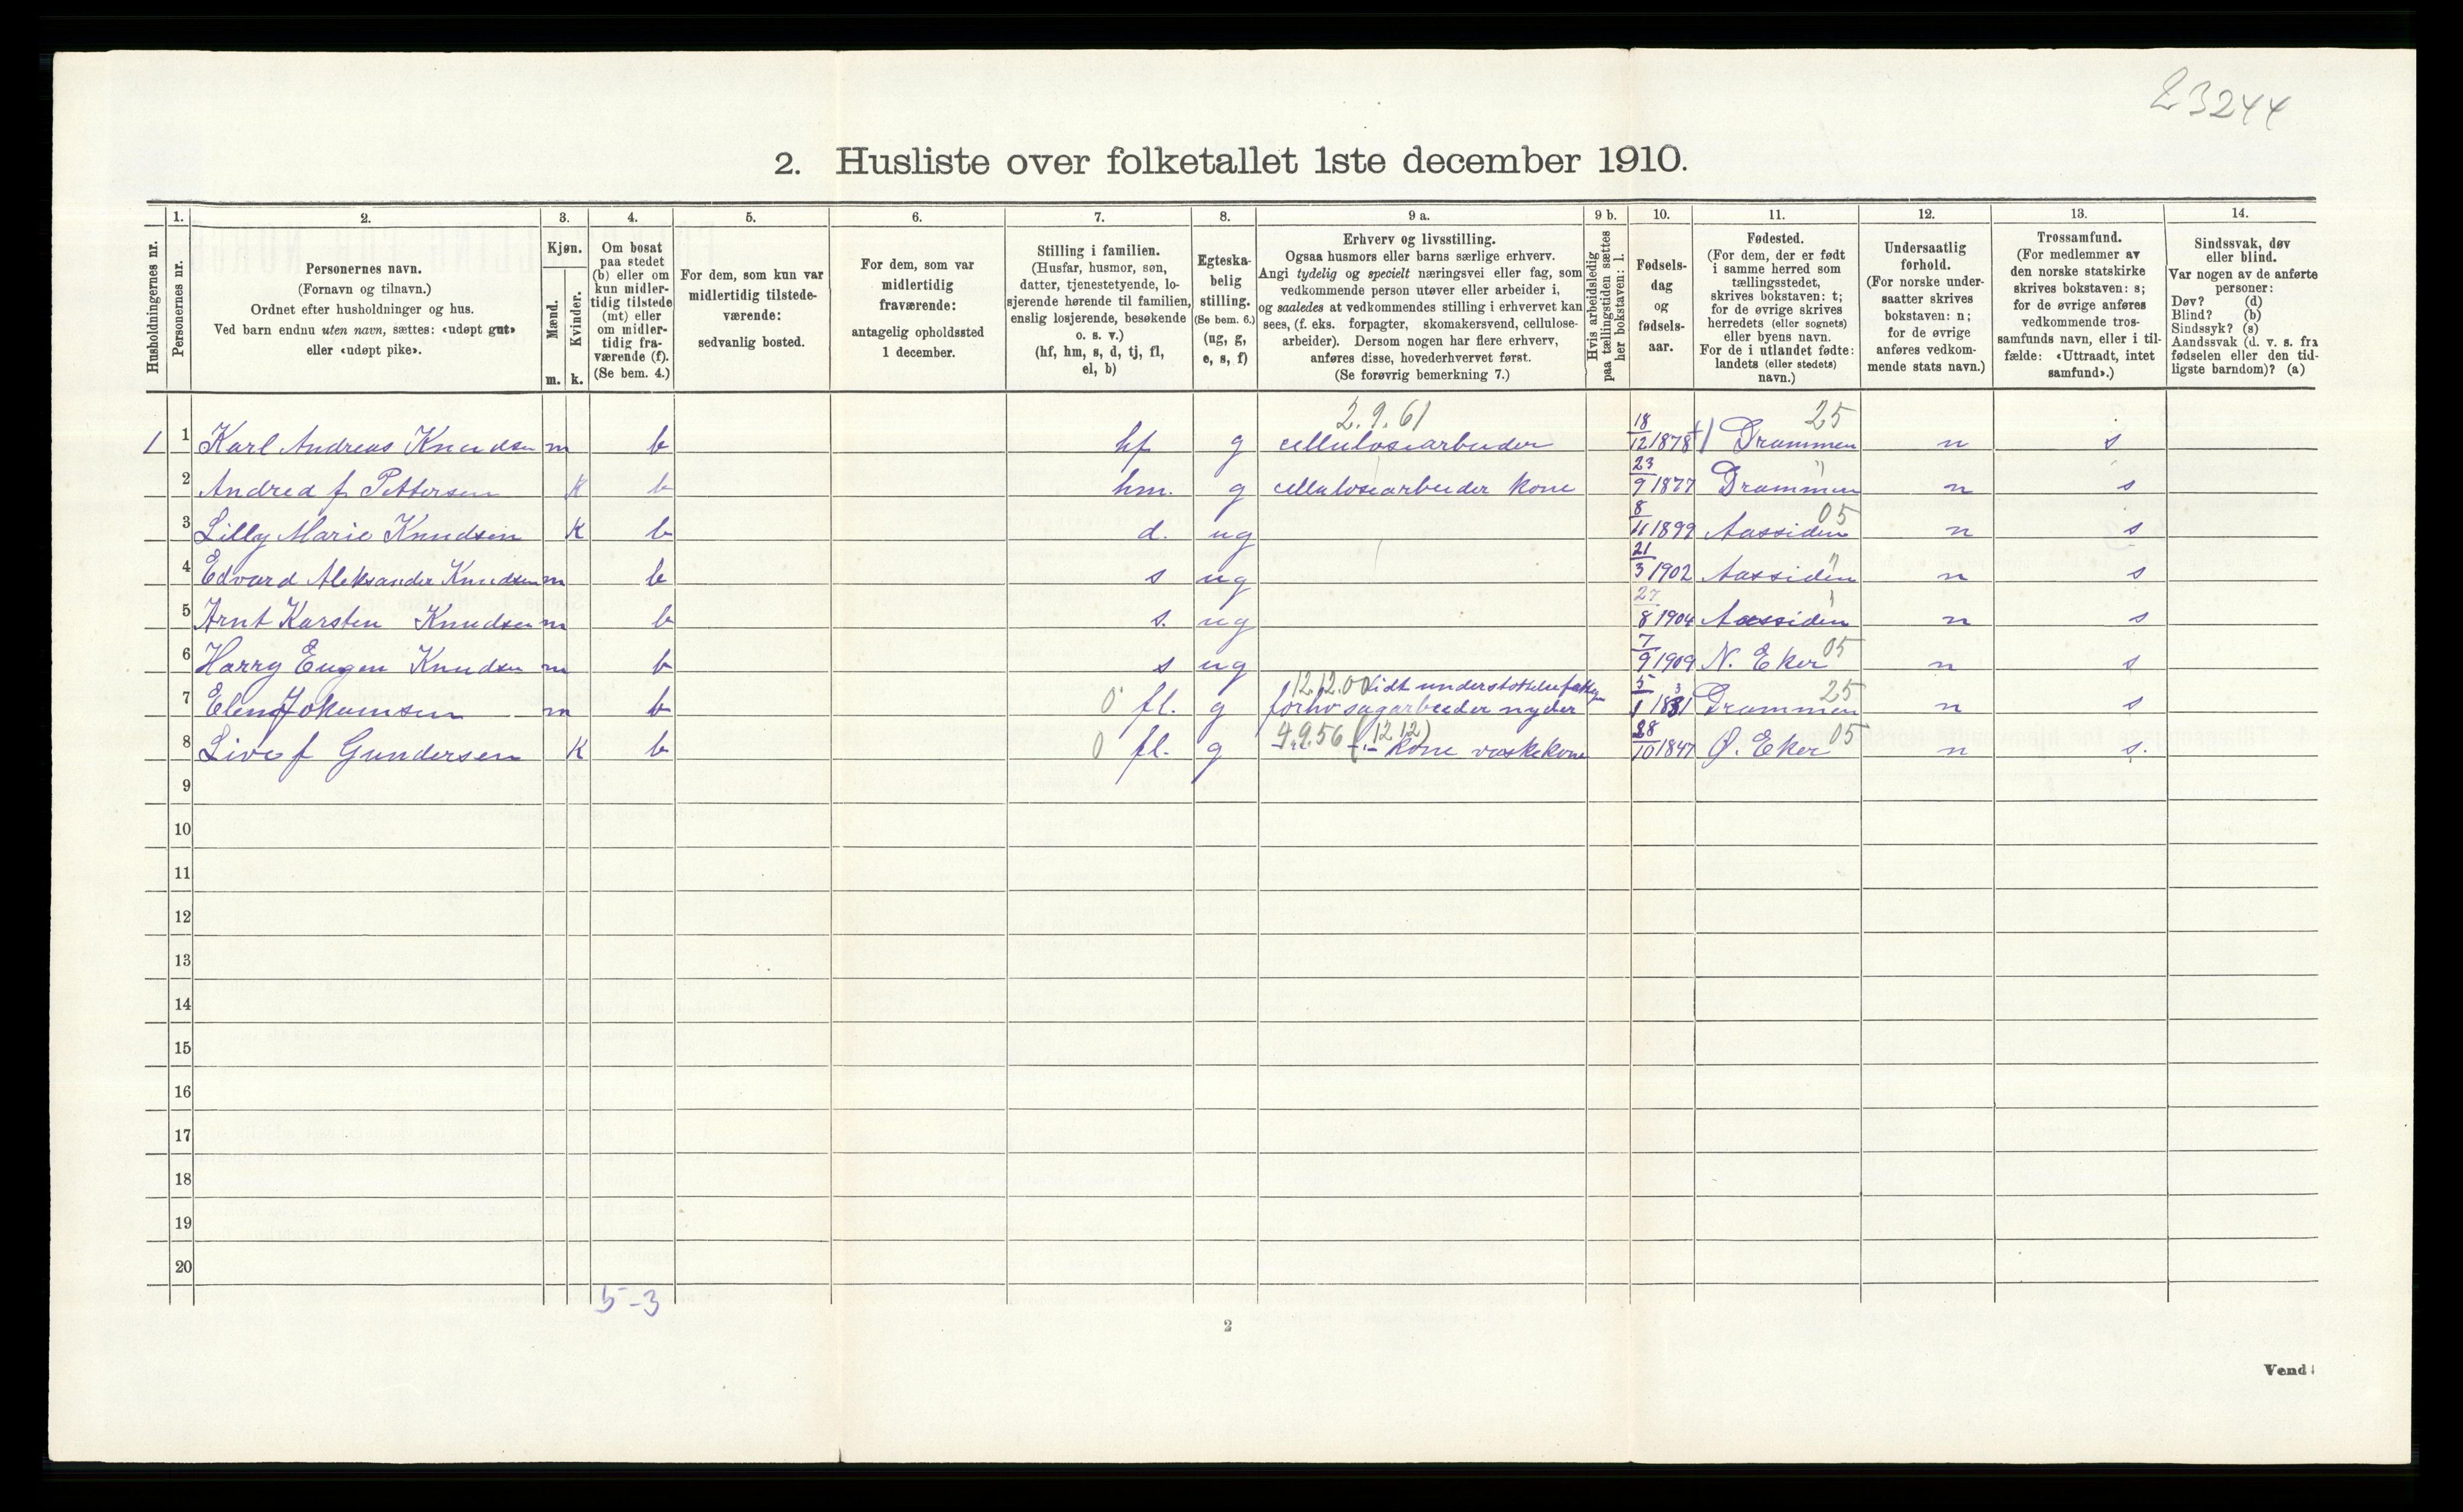 23244
2. Husliste over folketallet 1ste december 1910.
1. 2. 3. 4. 5. 6. 7. 8. 9 a. 9 b. 10. 11. 12. 13. 14.
Husholdningernes nr.
Personernes nr.
Personernes navn.
(Fornavn og tilnavn.)
Ordnet efter husholdninger og hus.
Ved barn endnu uten navn, sættes: «udøpt gut»
eller «udøpt pike».
Kjøn.
Mænd.
Kvinder.
m. k.
Om bosat
paa stedet
(b) eller om
kun midler-
tidig tilstede
(mt) eller
om midler-
tidig fra-
værende (f).
(Se bem. 4.)
For dem, som kun var
midlertidig tilstede-
værende:
sedvanlig bosted.
For dem, som var
midlertidig
fraværende:
antagelig opholdssted
1 december.
Stilling i familien.
(Husfar, husmor, søn,
datter, tjenestetyende, lo-
sjerende hørende til familien,
enslig losjerende, besøkende
o. s. v.)
(hf, hm, s, d, tj, fl,
el, b)
Egteska-
belig
stilling.
(Se bem. 6.)
(ug, g,
e, s, f)
Erhverv og livsstilling.
Ogsaa husmors eller barns særlige erhverv.
Angi tydelig og specielt næringsvei eller fag, som
vedkommende person utøver eller arbeider i,
og saaledes at vedkommendes stilling i erhvervet kan
sees, (f. eks. forpagter, skomakersvend, cellulose-
arbeider). Dersom nogen har flere erhverv,
anføres disse, hovederhvervet først.
(Se forøvrig bemerkning 7.)
Hvis arbeidsledig
paa tællingstiden sættes
her bokstaven: l.
Fødsels-
dag
og
fødsels-
aar.
Fødested.
(For dem, der er født
i samme herred som
tællingsstedet,
skrives bokstaven: t;
for de øvrige skrives
herredets (eller sognets)
eller byens navn.
For de i utlandet fødte:
landets (eller stedets)
navn.)
Undersaatlig
forhold.
(For norske under-
saatter skrives
bokstaven: n;
for de øvrige
anføres vedkom-
mende stats navn.)
Trossamfund.
(For medlemmer av
den norske statskirke
skrives bokstaven: s;
for de øvrige anføres
vedkommende tros-
samfunds navn, eller i til-
fælde: «Uttraadt, intet
samfund».)
Sindssvak, døv
eller blind.
Var nogen av de anførte
personer:
Døv? (d)
Blind? (b)
Sindssyk? (s)
Aandssvak (d. v. s. fra
fødselen eller den tid-
ligste barndom)? (a)
2.9.61 25
1 1 Karl Andreas Knudsen m b hf g cellulosearbeider 18/12 1878 Drammen n s
2 Andrea f. Pettersen K b hm. g cellulosearbeider kone 23/9 1877 Drammen " n s
3 Lilly Marie Knudsen K b d. ug 8/11 1899 Aassiden 05 n s
4 Edvard Aleksander Knudsen m b s ug 21/3 1902 Aassiden " n s
5 Arnt Karsten Knudsen m b s. ug 27/8 1904 Aassiden " n s
6 Harry Eugen Knudsen m b s ug 7/9 1909 N. Eker 05 n s
12.12.00 lidt understøttelse 25
7 Jokumsen m b 0 fl. g forhv sagarbeider nyder 5/1 1831 Drammen n s
4.9.56 (12 12) 05
8 Live f Gundersen K b 0 fl. g -"- kone vaskekone 28/10 1847 Ø. Eker n s.
9
10
11
12
13
14
15
16
17
18
19
20
5-3
2
Vend!